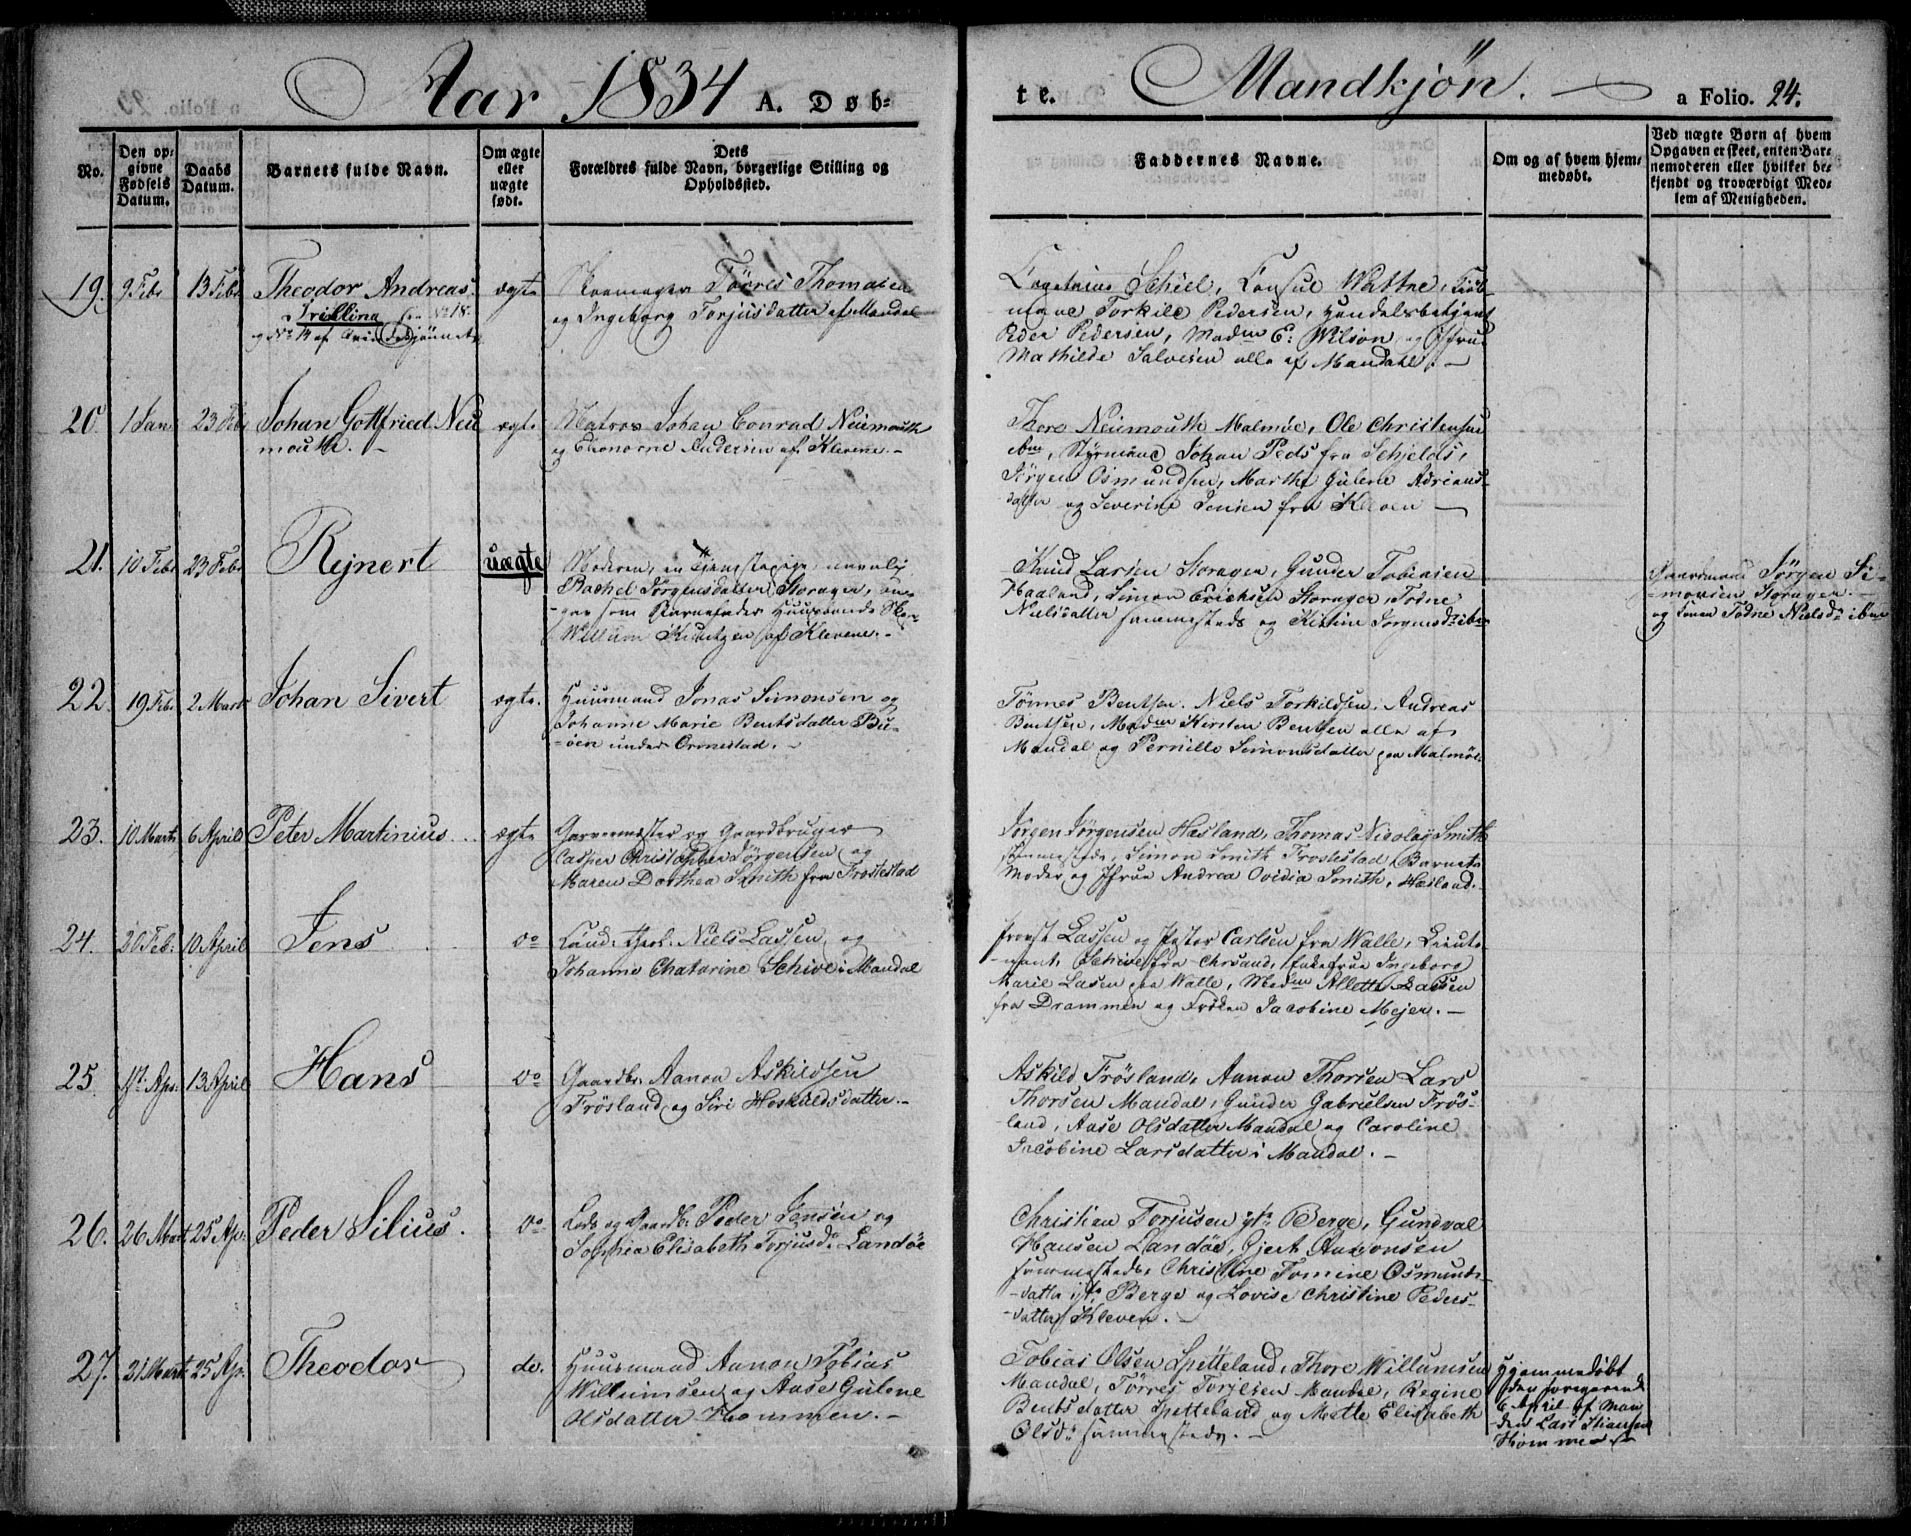 Aar 1834 A. Døb-
te. Mandkjön. a Folio. 24.
No.
Den op-
givne
Fødsels
Datum.
Daabs
Datum.
Barnets fulde Navn.
Om ægte
eller
uægte
født.
Dets
Forældres fulde Navn, borgerlige Stilling og
Opholdssted.
Faddernes Navne.
Om og af hvem hjem-
medøbt.
Ved uægte Børn af hvem
Opgaven er skeet, enten Bar-
nemoderen eller hvilket be-
kjendt og troværdigt Med-
lem af Menigheden.
19. 9 Febr 13 Febr Theodor Andreas. ægte
Trilling
Törres Thomasen
og Ingeborg Torjusdatter af Mandal
Schiel, Consul Wattne,
Torkild Pedersen, Handelsbetjent
Peder Pedersen, Madm E: Wilson og Jfru
Mathilde Salvesen alle af Mandahl. —
20. 1 Jan 23 Feb Johan Gottfried Neu
mouth. - ægte
Matros Johan Conrad Neumouth
og Andersen af Klevene. -
Thore Neumouth Malmöe, Ole Christensen
ibm, Styrmand Johan Peds fra
Jörgen Osmundsen, Marthe Gulene Adrians-
datter og Severine Jensen fra Kleven —
21. 10 Febr 23 Febr Rejnert uægte
Moderen, en Tjenestepige, navnlig
Rachel Jörgensdatter Storager, an-
-gav som Barnefader
Willum af Klevene. -
Knud Larsen Storager, Gunder Tobiasen
Haaland, Simon Erichsen Storager, Todne
Nielsdatter sammesteds og Kistine Jörgensdr ibm
Gaardmand Jörgen Si-
-monsen Storager. -
og Konen Todne Nielsdr ibm
22. 19 Febr 2 Marts Johan Sivert ægte.
Huusmand Jonas Simonsen og
Johanne Marie Bentsdatter Bu-
-öen under Ormestad. -
Tönnes Bentsen. Niels Torkildsen. Andreas
Bentsen, Madm Kirsten Bentsen alle af
Mandal og Pernille Simonsdatter paa Malmöe.
23. 10 Marts 6 April Peter Martinius ægte
Garvermester og Gaardbruger
Casper Christopher Jörgensen og
Maren Dorthea Smith fra Frostestad
Jörgen Jörgensen Hæsland, Thomas Nicolay Smith
sammesteds, Simon Smith Frostestad, Barnets
Moder og Jfrue Andrea Ovidia Smith, Hæsland.
24. 20 Feb: 10 April Jens do
Cand. theol. Niels Lassen, og
Johanne Chatarine Schive i Mandal
Provst Lassen og Pastor Carlsen fra Walle, Lieute-
-nant Schive fra Chrsand, Enkefrue Ingeborg
Marie Lasen paa Walle, Madm Alette Lassen
fra Drammen og Fröken Jacobine Mejer. —
25. Apr: 13 April Hans do
Gaardbr. Aanon Askildsen
Frösland og Siri Hoskuldsdatter. -
Askild Frösland, Aanon Thorsen Lars
Thorsen Mandal, Gunder Gabrielsen Frös-
land, Aase Olsdatter Mandal og Caroline
Jacobine Larsdatter i Mandal. -
26. 26 Mart 25 Apr: Peder Silius. do
Lods og Gaardb: Peder Jensen og
Sophia Elisabeth Torjusdr Landöe
Christian Torjusen Berge, Gundval
Hansen Landöe, Gjert Aanonsen
sammesteds, Christine Tomine Osmunds-
-datter Berge og Lovise Christine Peders-
-datter Kleven. -
27. 31 Marts 25 Apr. Theodor do.
Huusmand Aanon Tobias
Willumsen og Aase Gulene
Olsdatter Hommen. -
Tobias Olsen Spetteland, Thore Willumsen
Mandal, Törres Torjesen Mandal, Regine
Bentsdatter Spetteland og Mette Elisabeth
Olsdr sammesteds. -
Hjemmedöbt
den foregaaende
6 April af Man-
den Lars
Homme